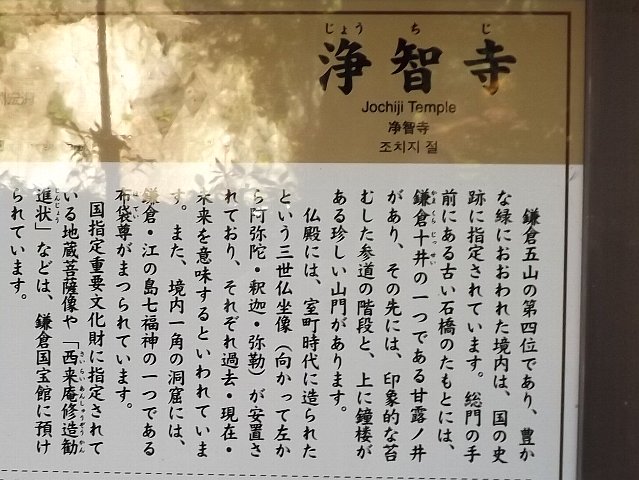 じょうちじ
浄智寺
Jochiji Temple
净智寺
조치지 절
鎌倉五山の第四位であり、豊か
な緑におおわれた境内は、国の史
跡に指定されています。総門の手
前にある古い石橋のたもとには、
鎌倉十井の一つである甘露ノ井
かまくらじっせい
があり、その先には、印象的な苔
むした参道の階段と、上に鐘楼が
ある珍しい山門があります。
仏殿には、室町時代に造られた
という三世仏坐像（向かって左か
ら阿弥陀・釈迦・弥勒）が安置さ
れており、それぞれ過去・現在・
未来を意味するといわれていま
す。また、境内一角の洞窟には、
鎌倉・江の島七福神の一つである
布袋尊がまつられています。
ほてい
国指定重要文化財に指定されて
いる地蔵菩薩像や「西来庵修造勧
さいらいあんしゅうぞうかん
進状」などは、鎌倉国宝館に預け
じんじょう
られています。